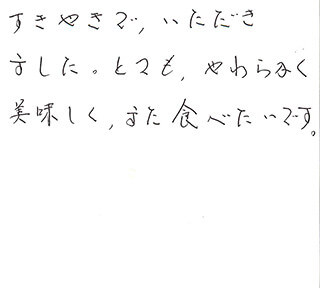 すきやきで、いただき
ました。とても、やわらかく
美味しく、また食べたいです。